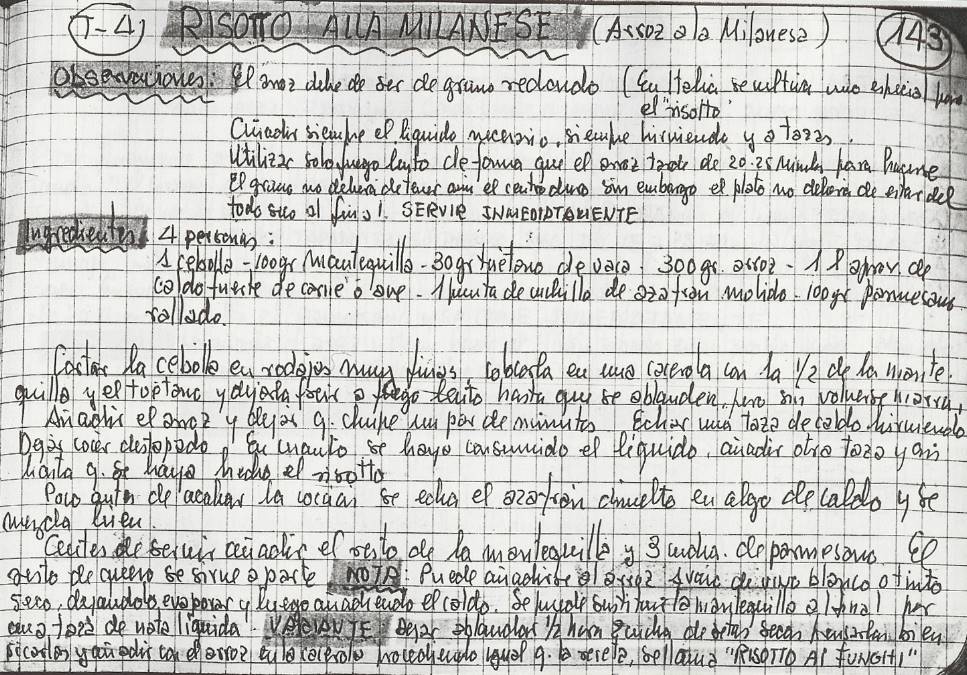 T-4 RISOTTO ALLA MILANESE (Arroz a la Milanesa) 143
Observaciones: El arroz debe de ser de grano redondo (En Italia se cultiva uno especial para
el "risotto"
Añadir siempre el líquido necesario, siempre hirviendo y a tazas.
Utilizar solo fuego lento de forma que el arroz tarde de 20-25 minutos para hacerse
El grano no deberá de tener aun el centro duro sin embargo el plato no deberá de estar del
todo seco al final. SERVIR INMEDIATAMENTE
Ingredientes 4 personas:
1 cebolla - 100gr mantequilla - 30gr tuétano de vaca - 300gr. arroz - 1 l aprox. de
caldo fuerte de carne ó ave - 1 punta de cuchillo de azafrán molido - 100gr parmesano
rallado.
Cortar la cebolla en rodajas muy finas. Colocarla en una cacerola con la 1/2 de la mante-
quilla y el tuétano y dejarla freir a fuego lento hasta que se ablanden, pero sin volverse marrón,
Añadir el arroz y dejar q. chupe un par de minutos Echar una taza de caldo hirviendo
Dejar cocer destapado. En cuanto se haya consumido el líquido, añadir otra taza y asi
hasta q. se haya hecho el risotto
Poco antes de acabar la cocción se echa el azafrán disuelto en algo de caldo y se
mezcla bien.
Antes de servir añadir el resto de la mantequilla y 3 cucha. de parmesano. El
resto de queso se sirve aparte NOTA: Puede añadirse al arroz 1 vaso de vino blanco o tinto
seco, dejandolo evaporar y luego añadiendo el caldo. Se puede sustituir la mantequilla al final por
una taza de nata líquida" VARIANTE Dejar ablandar 1/2 hora cucha de setas secas bien
secarlas y añadir con el arroz en la cacerola procediendo igual q. la receta, se llama "RISOTTO AI FUNGHI"